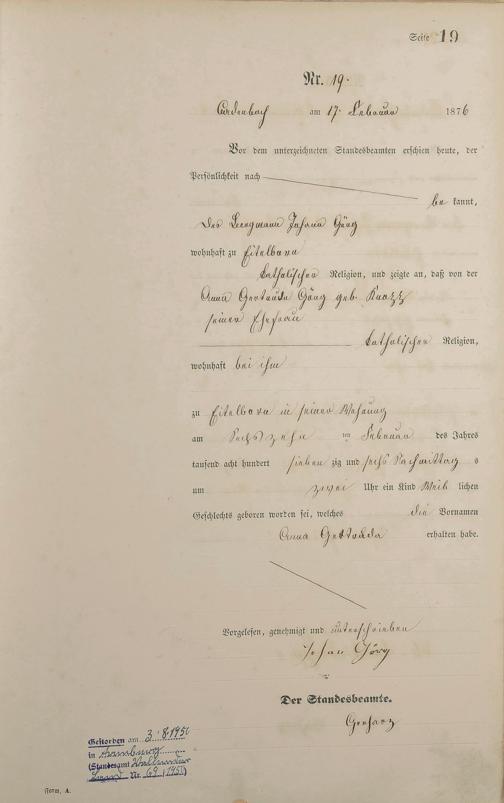 Seite 19
Nr. 19.
am 17. Februar 1876
Vor dem unterzeichneten Standesbeamten erschien heute, der
Persönlichkeit nach
be kannt,
der Bergmann Johann Görg
wohnhaft zu Eitelborn
katholischer Religion, und zeigte an, daß von der
Anna Gertruda Görg geb.
seiner Ehefrau
katholischer Religion,
wohnhaft bei ihm
zu Eitelborn in seiner Wohnung
am sechszehn im Februar des Jahres
tausend acht hundert sieben zig und sechs Nachmittag s
um zwei Uhr ein Kind weib lichen
Geschlechts geboren worden sei, welches die Vornamen
Anna Gertruda erhalten habe.
Vorgelesen, genehmigt und unterschrieben
Johan Görg
Der Standesbeamte.
Gestorben am 3.8.1950
in
(Standesamt
Nr. 69
Form. A.